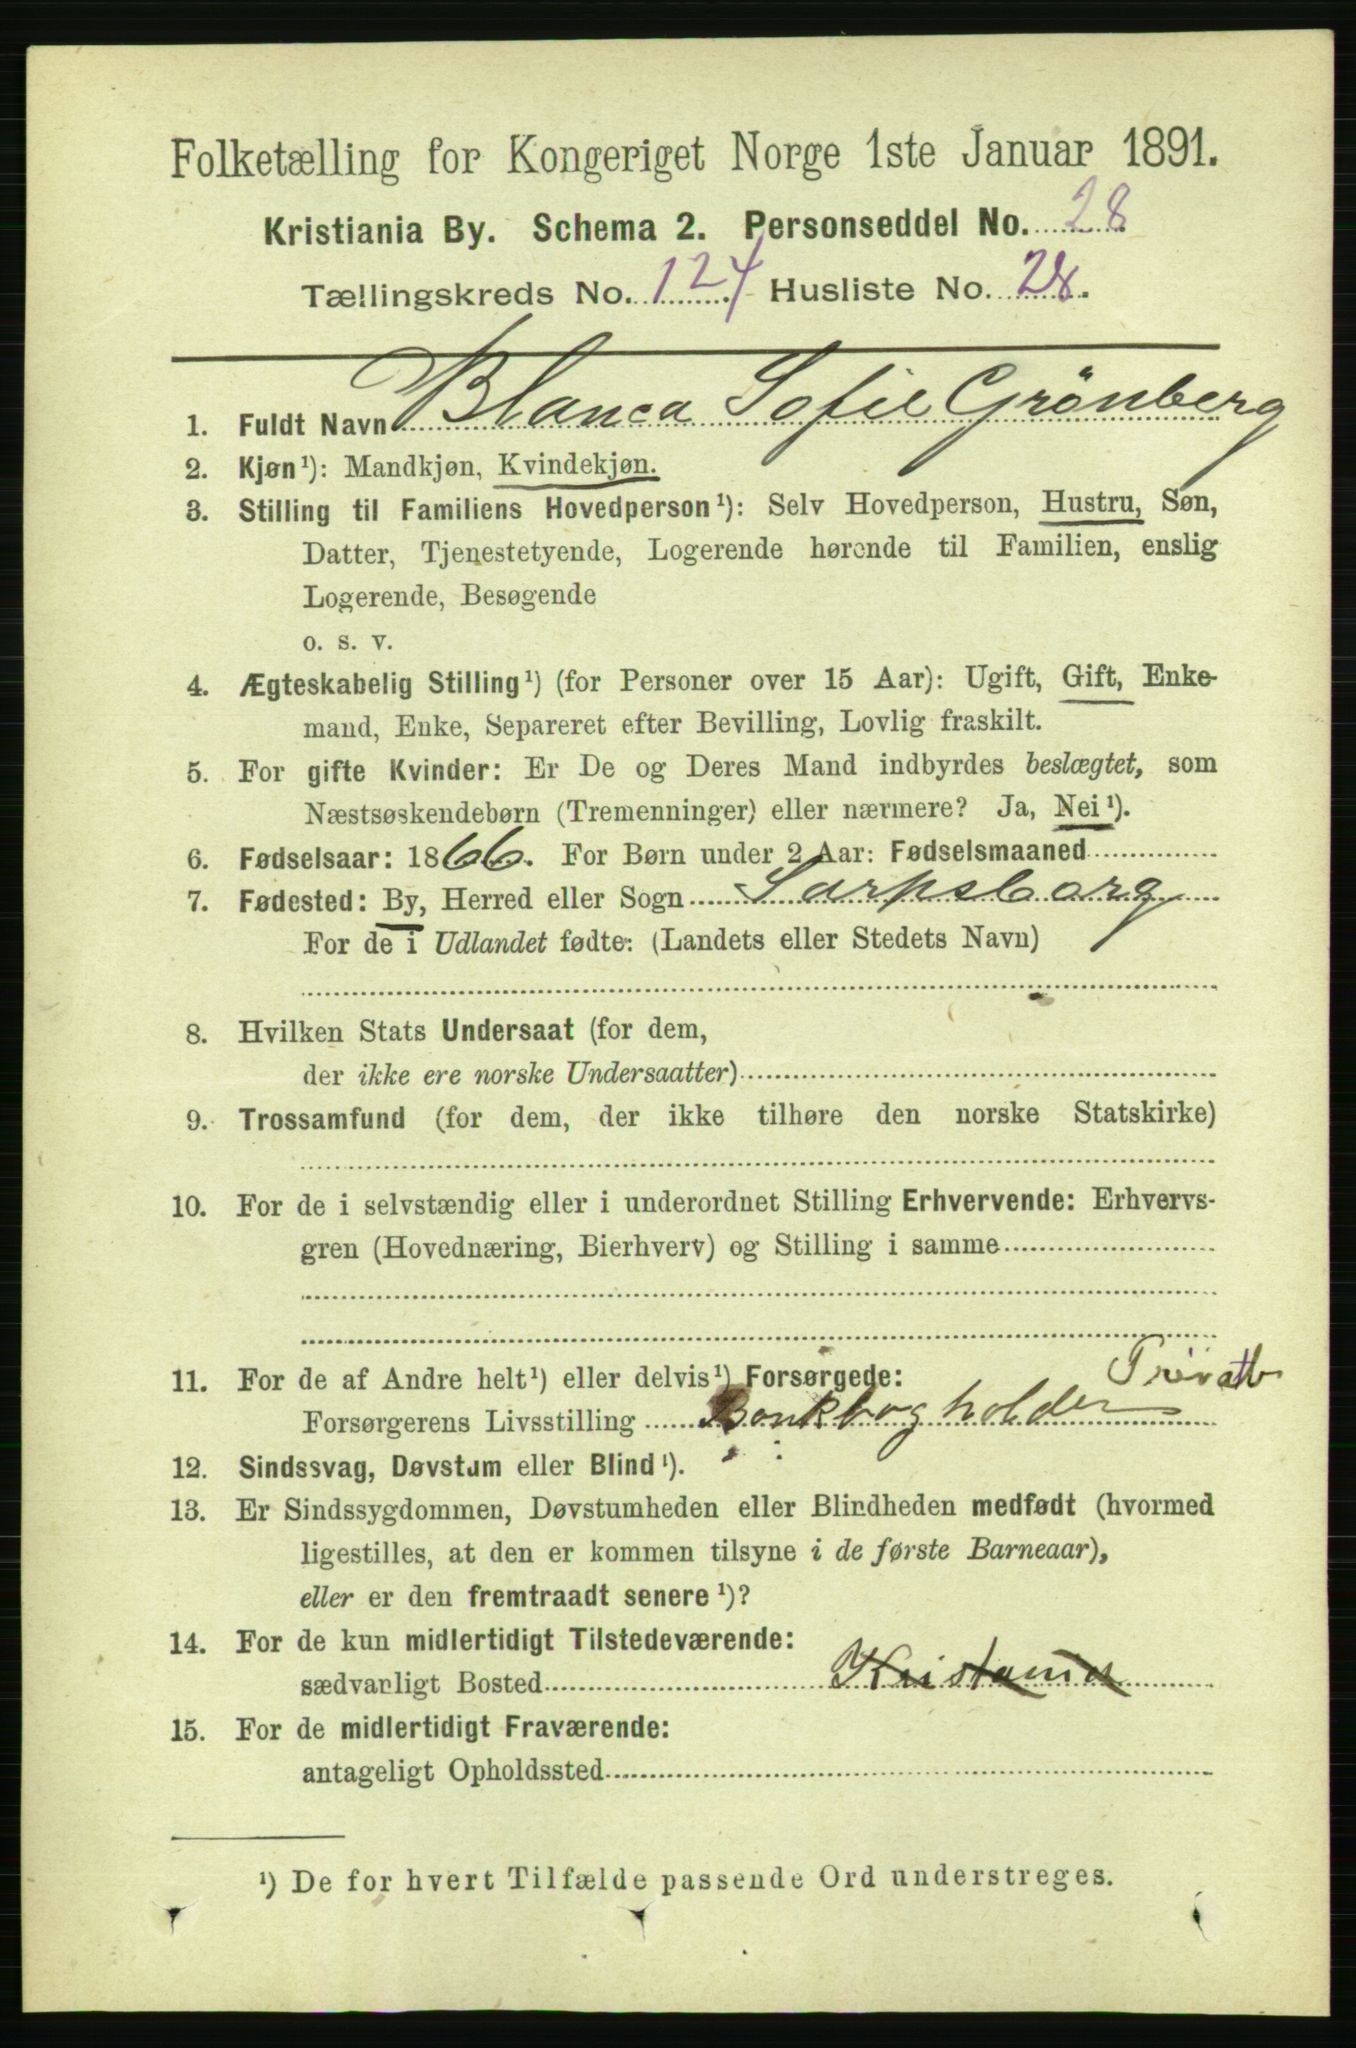 Folketælling for Kongeriget Norge 1ste Januar 1891.
Kristiania By. Schema 2. Personseddel No. 28
Tællingskreds No. 124 Husliste No. 28.
1. Fuldt Navn Blanca Sofie Grönberg
2. Kjøn¹): Mandkjøn, Kvindekjøn.
3. Stilling til Familiens Hovedperson¹): Selv Hovedperson, Hustru, Søn,
Datter, Tjenestetyende, Logerende hørende til Familien, enslig
Logerende, Besøgende
o. s. v.
4. Ægteskabelig Stilling¹) (for Personer over 15 Aar): Ugift, Gift, Enke-
mand, Enke, Separeret efter Bevilling, Lovlig fraskilt.
5. For gifte Kvinder: Er De og Deres Mand indbyrdes beslægtet, som
Næstsøskendebørn (Tremenninger) eller nærmere? Ja, Nei¹).
6. Fødselsaar: 1866. For Børn under 2 Aar: Fødselsmaaned
7. Fødested: By, Herred eller Sogn Sarpsborg
For de i Udlandet fødte: (Landets eller Stedets Navn)
8. Hvilken Stats Undersaat (for dem,
der ikke ere norske Undersaatter)
9. Trossamfund (for dem, der ikke tilhøre den norske Statskirke)
10. For de i selvstændig eller i underordnet Stilling Erhvervende: Erhvervs-
gren (Hovednæring, Bierhverv) og Stilling i samme
11. For de af Andre helt¹) eller delvis¹) Forsørgede: Privatb
Forsørgerens Livsstilling Bankbogholder
12. Sindssvag, Døvstum eller Blind¹).
13. Er Sindssygdommen, Døvstumheden eller Blindheden medfødt (hvormed
ligestilles, at den er kommen tilsyne i de første Barneaar),
eller er den fremtraadt senere¹)?
14. For de kun midlertidigt Tilstedeværende:
sædvanligt Bosted Kristania
15. For de midlertidigt Fraværende:
antageligt Opholdssted
¹) De for hvert Tilfælde passende Ord understreges.